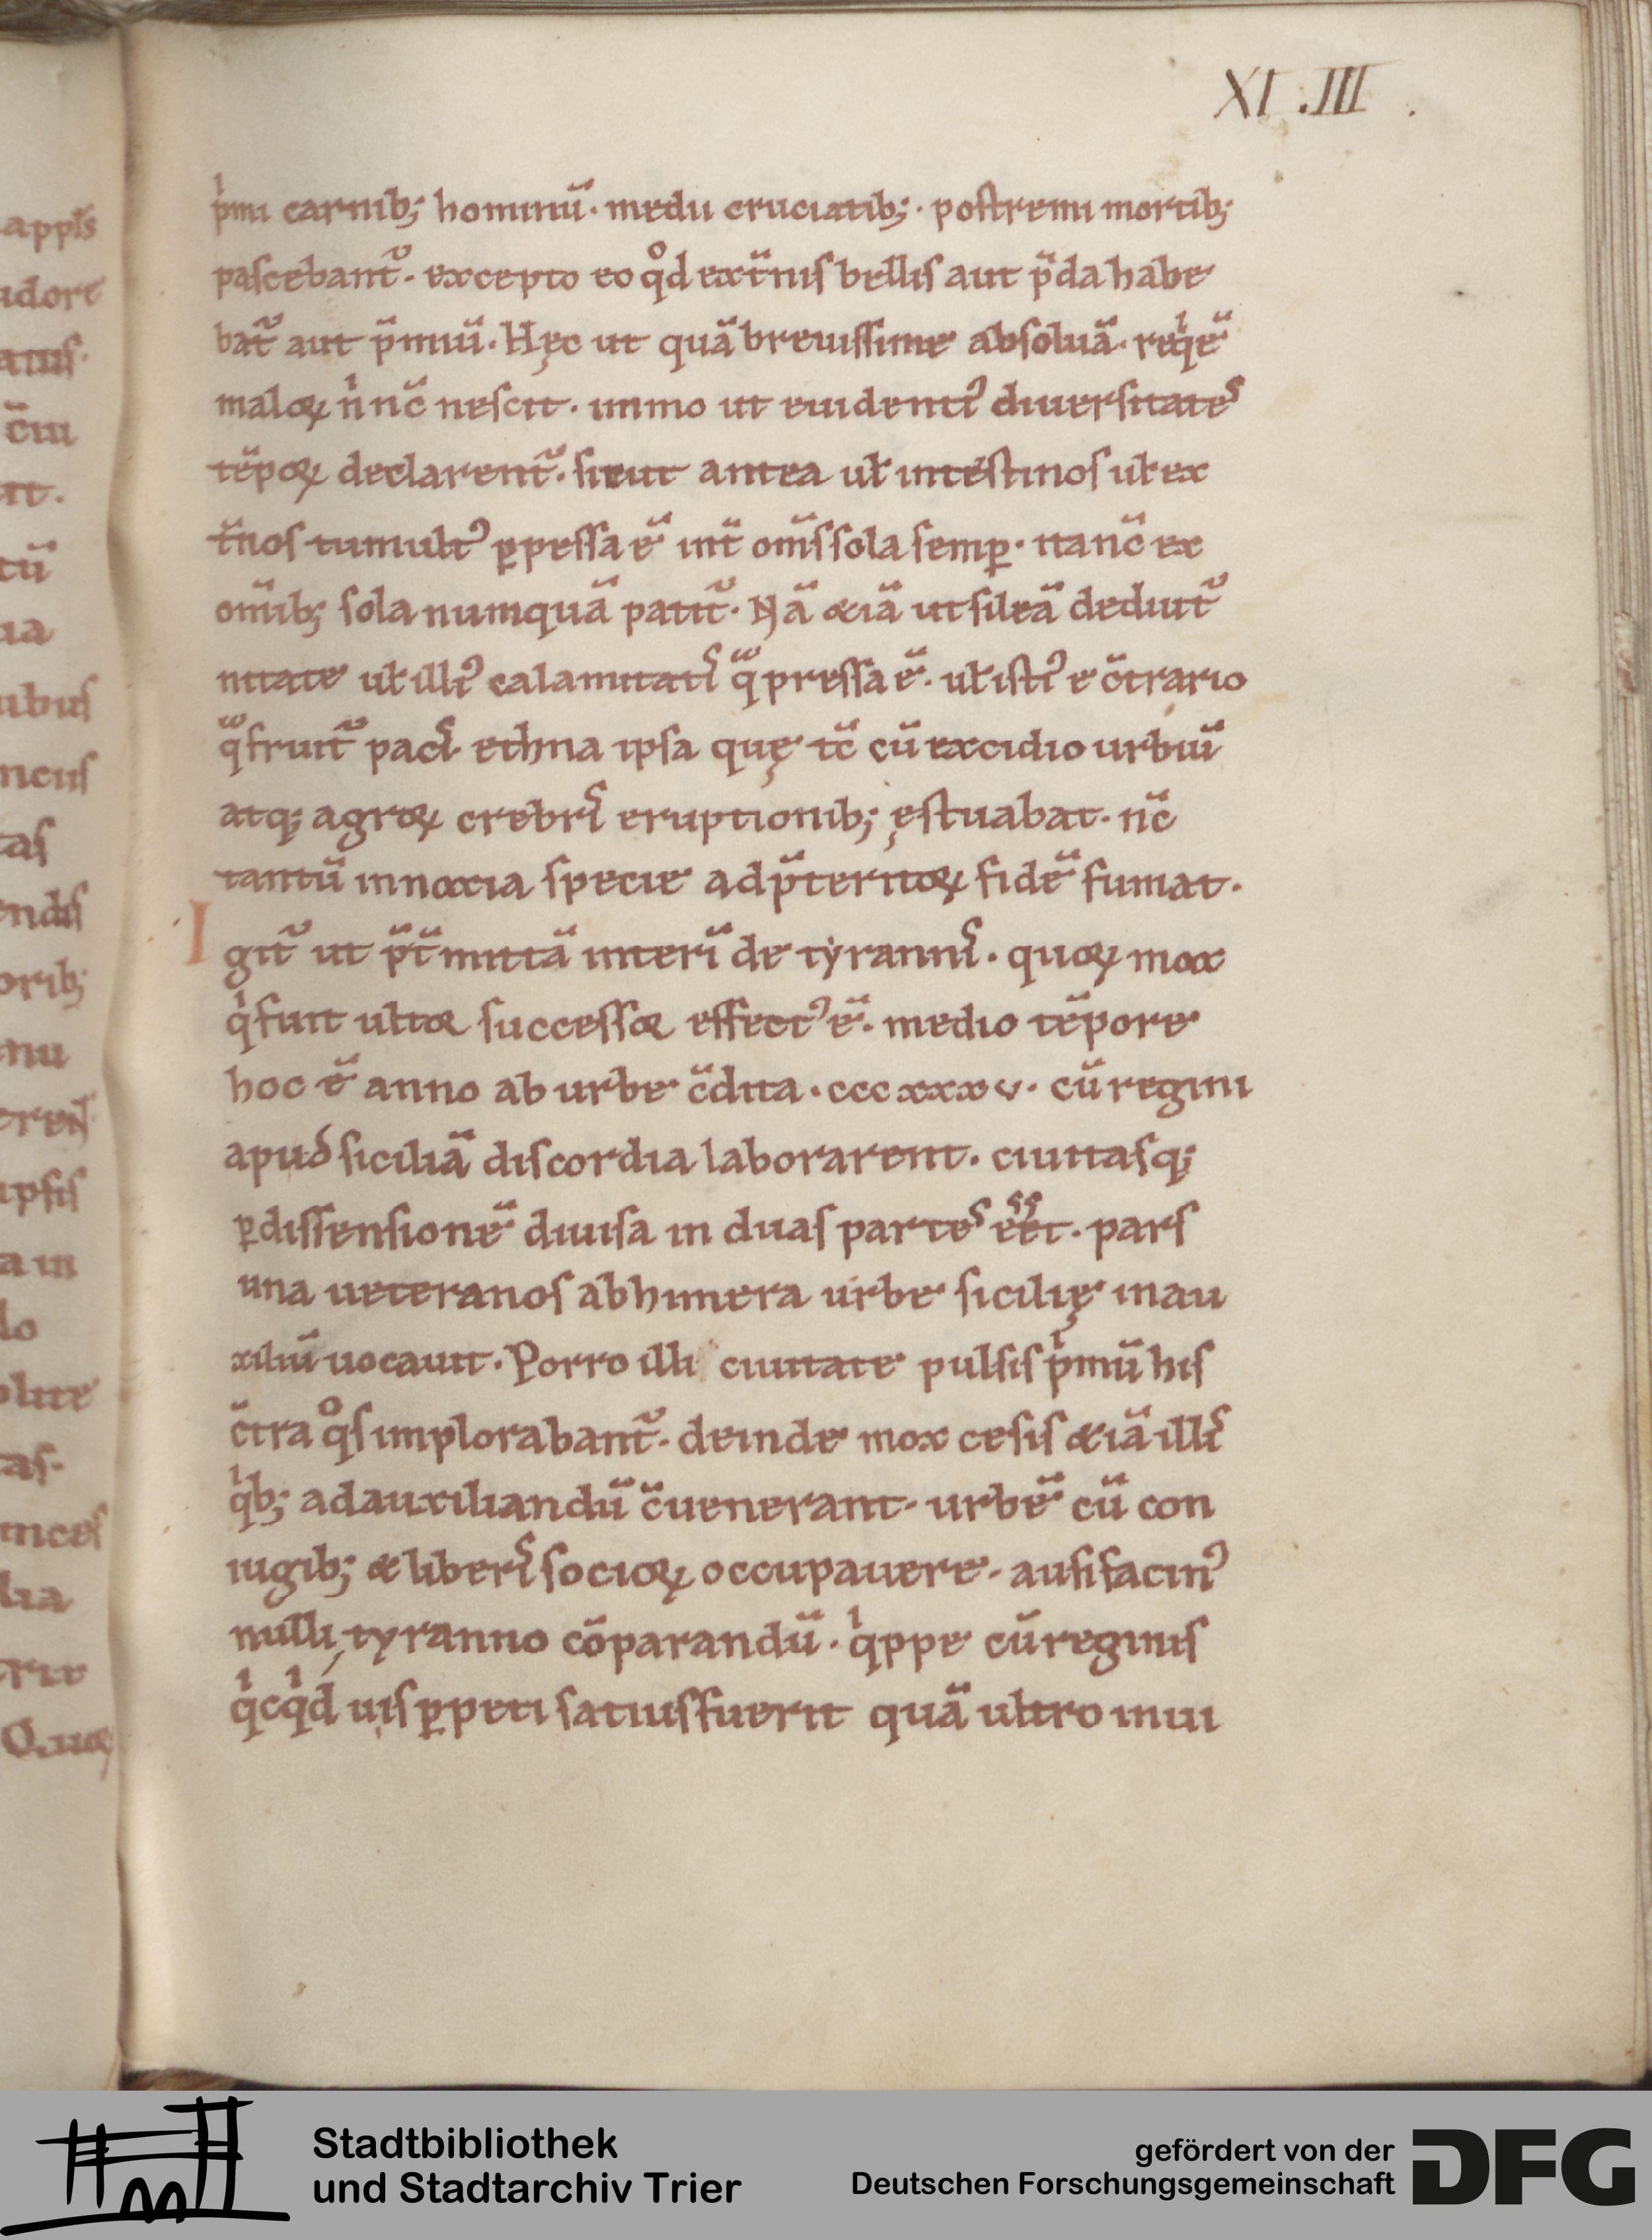 XLIII.
pͥmi carnib; hominū· medii cruciatib;· postremi mortib;
pascebant᷑· excepto eo qͦd ext̄nis bellis aut p̄da habe
bat᷑ aut p̄miū· Hęc ut quā breuissime absoluā· reqͥē
maloꝝ nͥ nc̄ nescit· immo ut euidentiꝰ diuersitates
tēpoꝝ declarent᷑· sicut antea ul̄ intestinos ul̄ ex
t̄nos tumultꝰ ꝑpessa ē int̄ om̄s sola semꝑ· ita nc̄ ex
om̄ib; sola numquā patit᷑· Nā &iā ut sileā de diut᷑
nitate ul̄ illiꝰ calamitatis qͣ pressa ē· ul̄ istiꝰ e c̄trario
qͣ fruit᷑ pacis· ethna ipsa quę tc̄ cū excidio urbiū
atq; agroꝝ crebris eruptionib; ęstuabat· nc̄
tantū innoxia specie ad p̄teritoꝝ fidē fumat·
Igit᷑ ut p̄t̄mittā interī de tyrannis· quoꝝ mox
qͥ fuit ultor successor effectꝰ ē· medio tēpore
hoc ē anno ab urbe c̄dita· cccxxxv· cū regini
apud siciliā discordia laborarent· ciuitasq;
ꝑ dissensionē diuisa in duas partes eēt· pars
una ueteranos ab himera urbe sicilię in au
xiliū uocauit· Porro illi ciuitate pulsis pͥmū his
c̄tra qͦs implorabant᷑· deinde mox cesis &iā illis
qͥb; ad auxiliandū c̄uenerant· urbē cū con
iugib; & liberis socioꝝ occupauere· ausi facinꝰ
nulli tyranno cōparandū· qͥppe cū reginis
qͥcqͥd uis ꝑpeti satius fuerit quā ultro inui
Stadtbibliothek
und Stadtarchiv Trier
gefördert von der
Deutschen Forschungsgemeinschaft
DFG